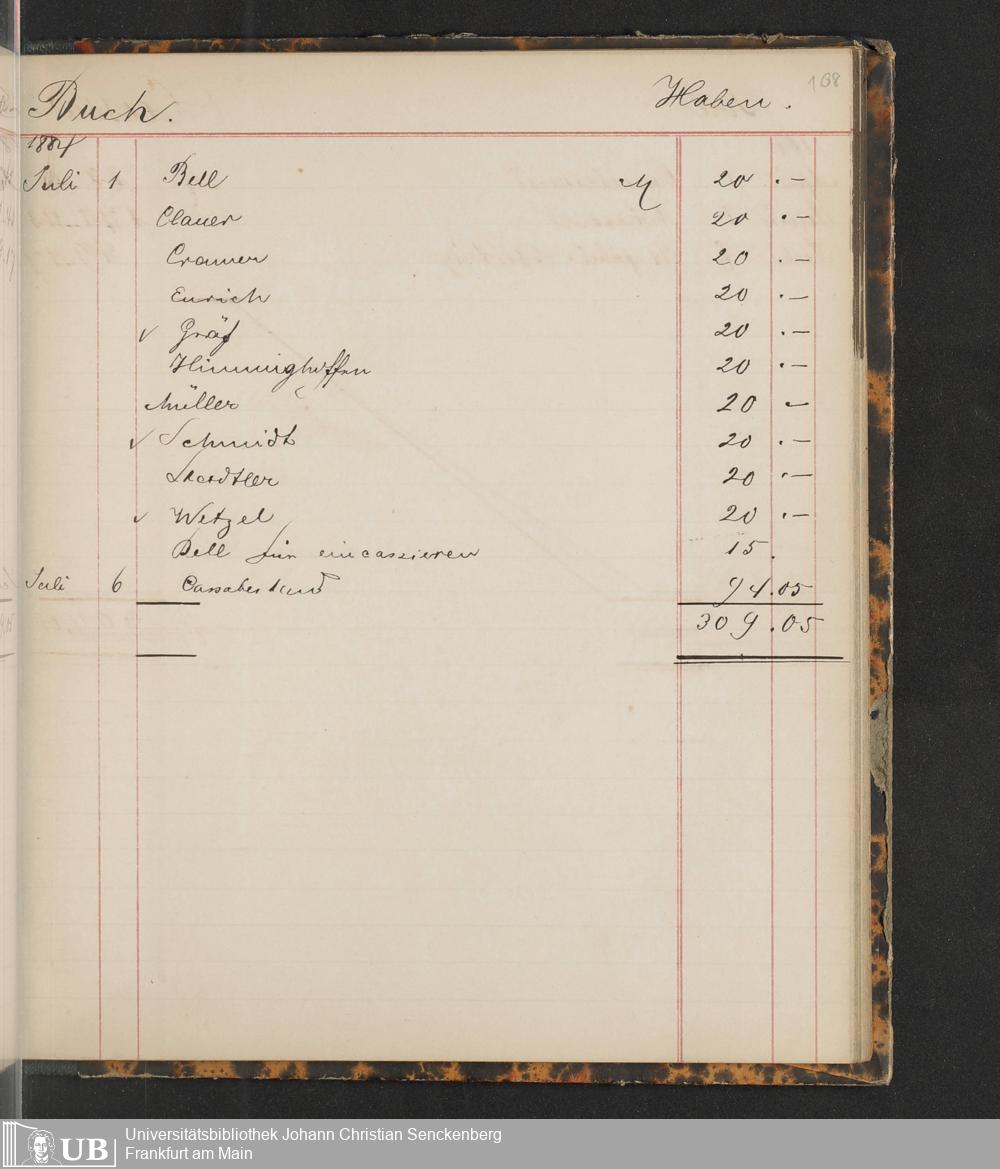 168
Buch. Haben.
1884
Juli 1 Bell M 20 . —
Clauer 20 . —
Cramer 20 . —
Emrich 20 . —
✓ Gräf 20 . —
Himminghoffen 20 . —
Müller 20 —
✓ Schmidt 20 . —
Staedtler 20 . —
✓ Wetzel 20 . —
Bell für eincassieren 15 .
Juli 6 Cassabestand 94.05
309.05
UB
Universitätsbibliothek Johann Christian Senckenberg
Frankfurt am Main